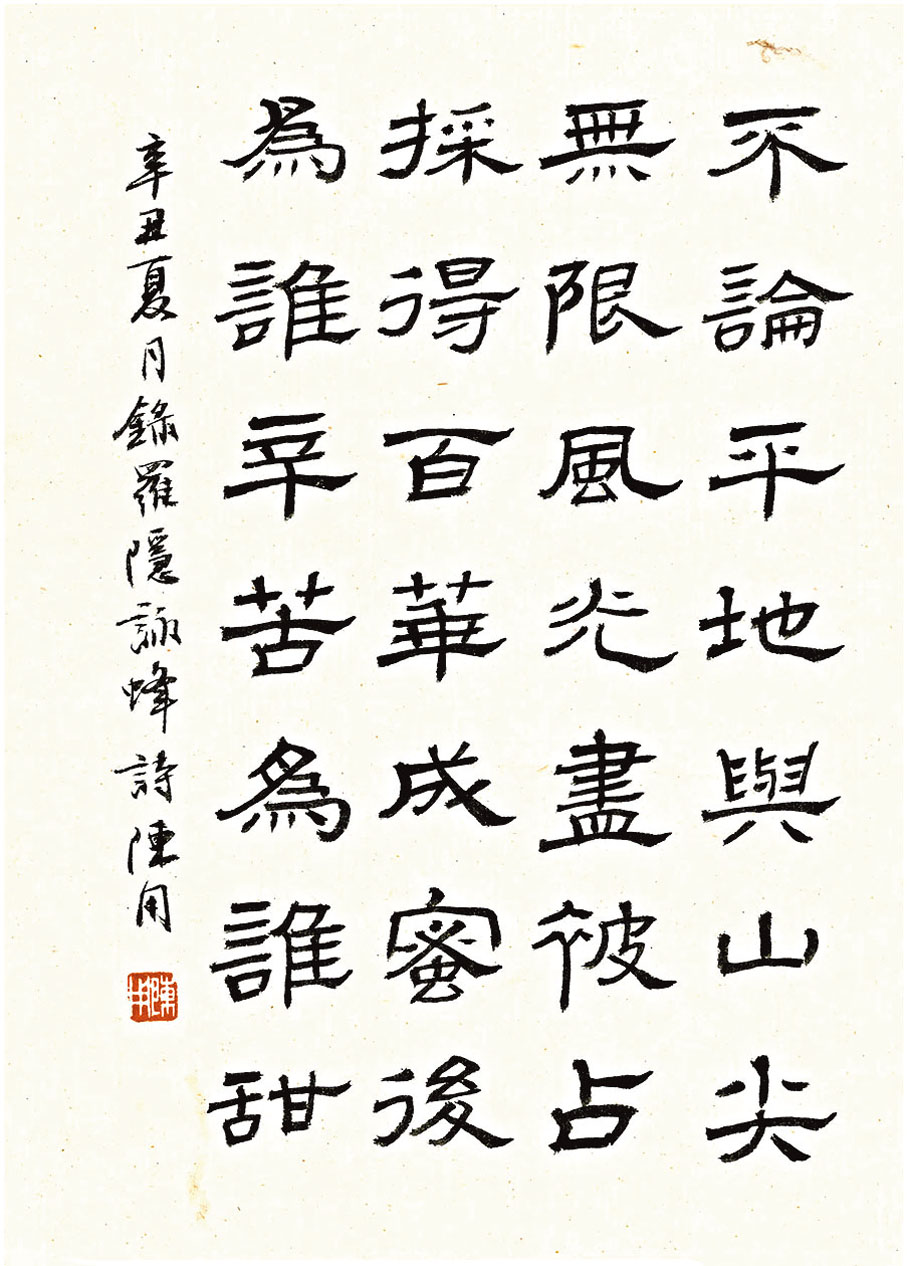 不論平地與山尖
無限風光盡被占
採得百華成蜜後
為誰辛苦為誰甜
辛丑夏月錄羅隱詠蜂詩陳用
陳用